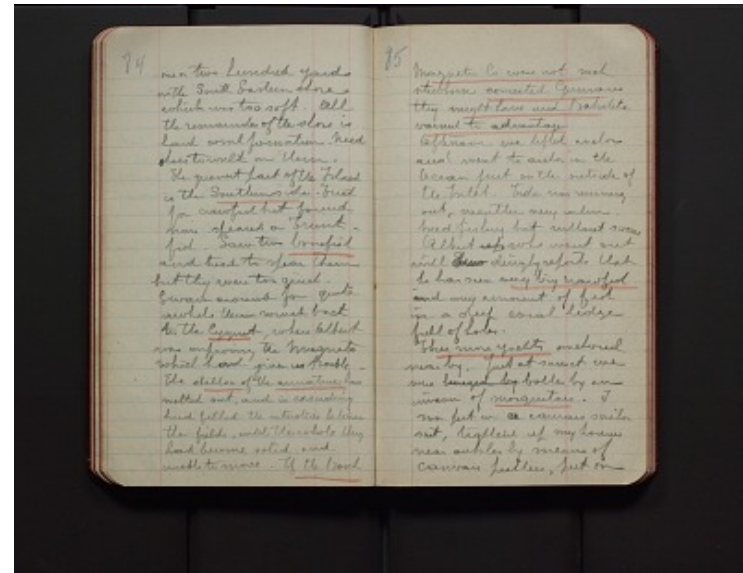 84
men two hundred yards
on the South Eastern shore
which was too soft. All
the remainder of the shore is
hard coral formation. Need
shoes to walk on them.
The prettiest part of the Island
is the Southern side. Tried
for crawfish but found
none speared a Trunk-
fish. Saw two bonefish
and tried to spear them
but they were too quick.
Swam around for quite
awhile then went back
to the Cygnet, where Albert
was improving the Magneto
which had given us trouble.
The shellac of the armature has
melted out, and in
had filled the between
the fields, until the whole thing
had become and
unable to move. If the Bosch
85
Magneto Co were not such
Germans
they might have used Bakelite
varnish to advantage
Afternoon we lifted anchor
and went to anchor in the
Ocean just on the outside of
the Inlet. Tide was running
out, weather very calm.
Tried fishing but without success
Albert who went out
with dinghy reports that
he has seen very big crawfish
and any amount of fish
in a deep coral ledge
full of holes.
Three more yachts anchored
near by. Just at sunset we
were by an
invasion of mosquitoes. I
put on a canvas sailor
suit, tightened up my trousers
near ankles by means of
canvas , put on